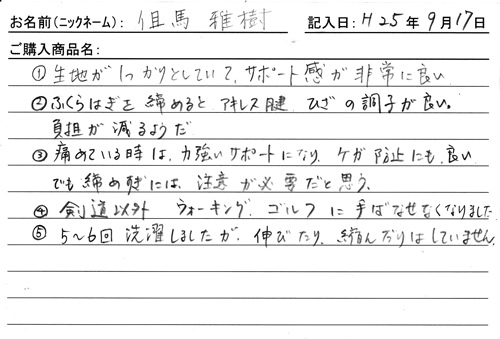 お名前(ニックネーム): 但馬 雅樹 記入日: H25年9月17日
ご購入商品名:
① 生地がしっかりとしていて、サポート感が非常に良い
② ふくらはぎを締めると アキレス腱 ひざの調子が良い。
負担が減るようだ
③ 痛めている時は、力強いサポートになり、ケガ防止にも良い
でも締めすぎには、注意が必要だと思う。
④ 剣道以外 ウォーキング、ゴルフに手ばなせなくなりました
⑤ 5〜6回洗濯しましたが、伸びたり、縮んだりはしていません。